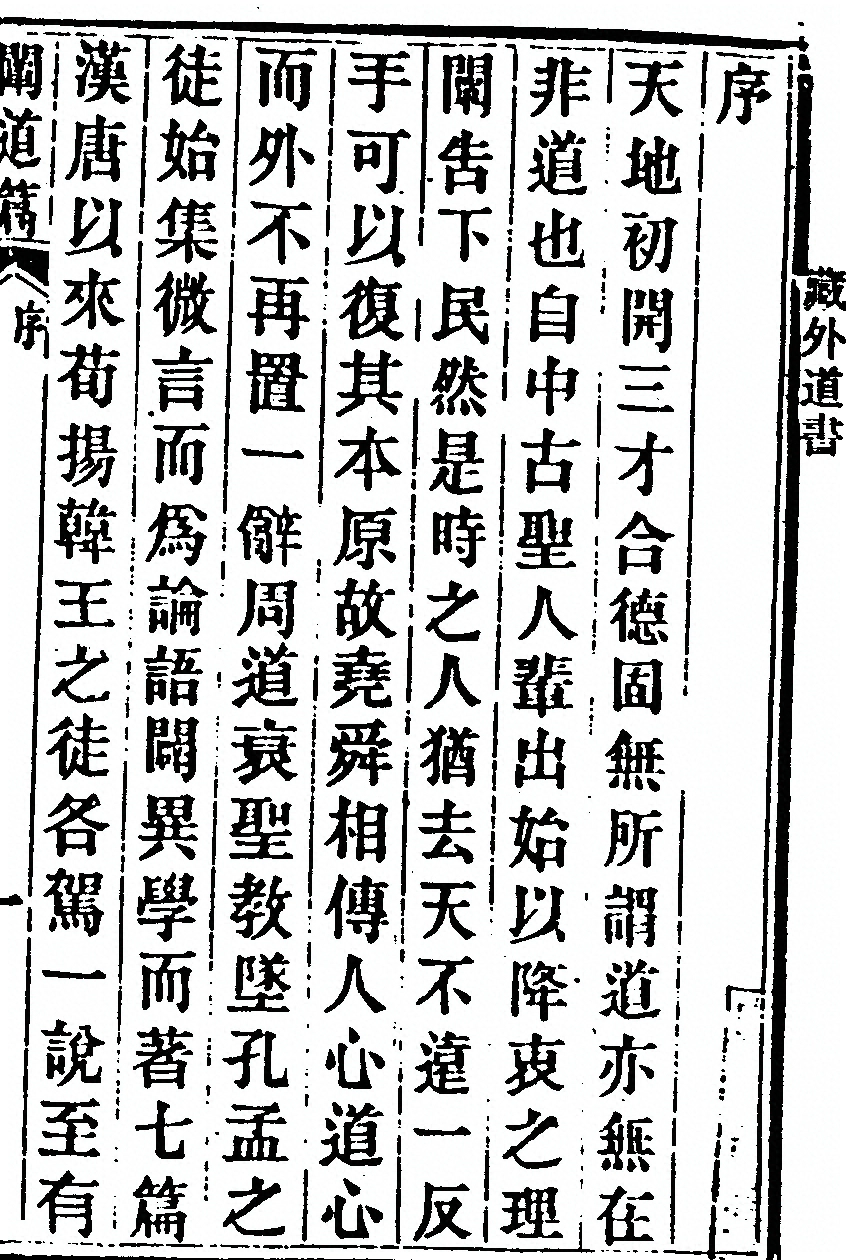 藏外道書
序
天地初開三才合德固無所謂道亦無在
非道也自中古聖人輩出始以降衷之理
闡吿下民然是時之人猶去天不遠一反
手可以復其本原故堯舜相傳人心道心
而外不再置一辭周道衰聖教墜孔孟之
徒始集微言而爲論語闢異學而著七篇
漢唐以來荀揚韓王之徒各駕一說至有
闡道篇
序
一